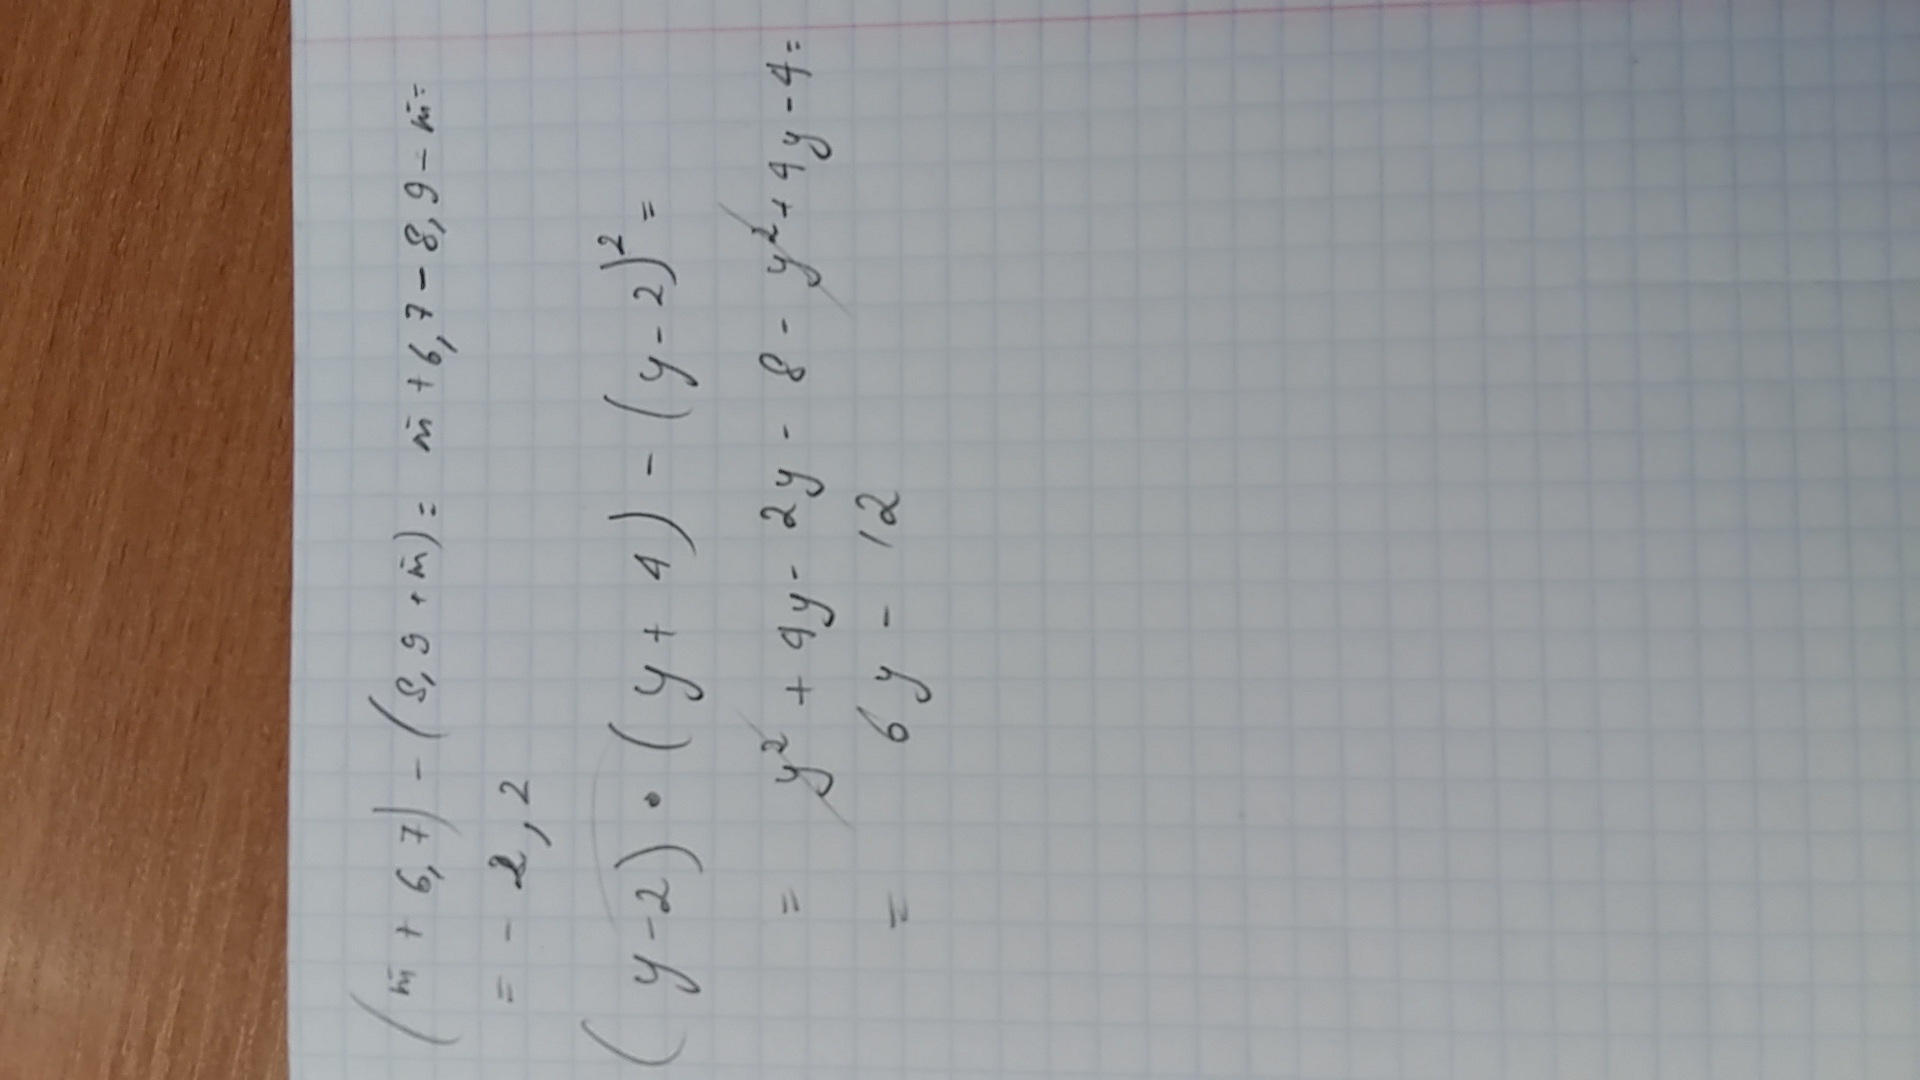 (m̄ + 6,7) - (8,9 + m̄) = m̄ + 6,7 - 8,9 - m̄ =
= - 2,2
(y - 2) • (y + 4) - (y - 2)² =
= y² + 4y - 2y - 8 - y² + 4y - 4 =
= 6y - 12